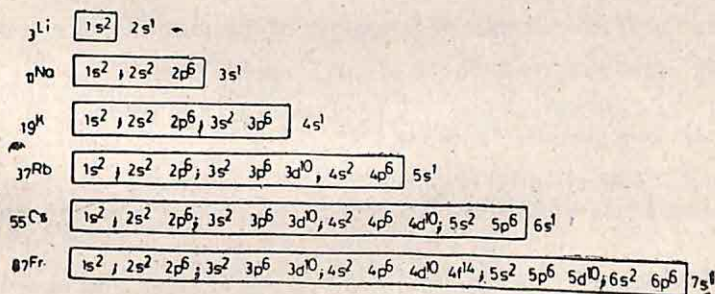 ₃Li 1s² 2s¹
₁₁Na 1s² , 2s² 2p⁶ 3s¹
₁₉K 1s² , 2s² 2p⁶ , 3s² 3p⁶ 4s¹
₃₇Rb 1s² , 2s² 2p⁶ ; 3s² 3p⁶ 3d¹⁰ , 4s² 4p⁶ 5s¹
₅₅Cs 1s² , 2s² 2p⁶ ; 3s² 3p⁶ 3d¹⁰ ; 4s² 4p⁶ 4d¹⁰ ; 5s² 5p⁶ 6s¹
₈₇Fr. 1s² ; 2s² 2p⁶ ; 3s² 3p⁶ 3d¹⁰ ; 4s² 4p⁶ 4d¹⁰ 4f¹⁴ ; 5s² 5p⁶ 5d¹⁰ ; 6s² 6p⁶ 7s¹